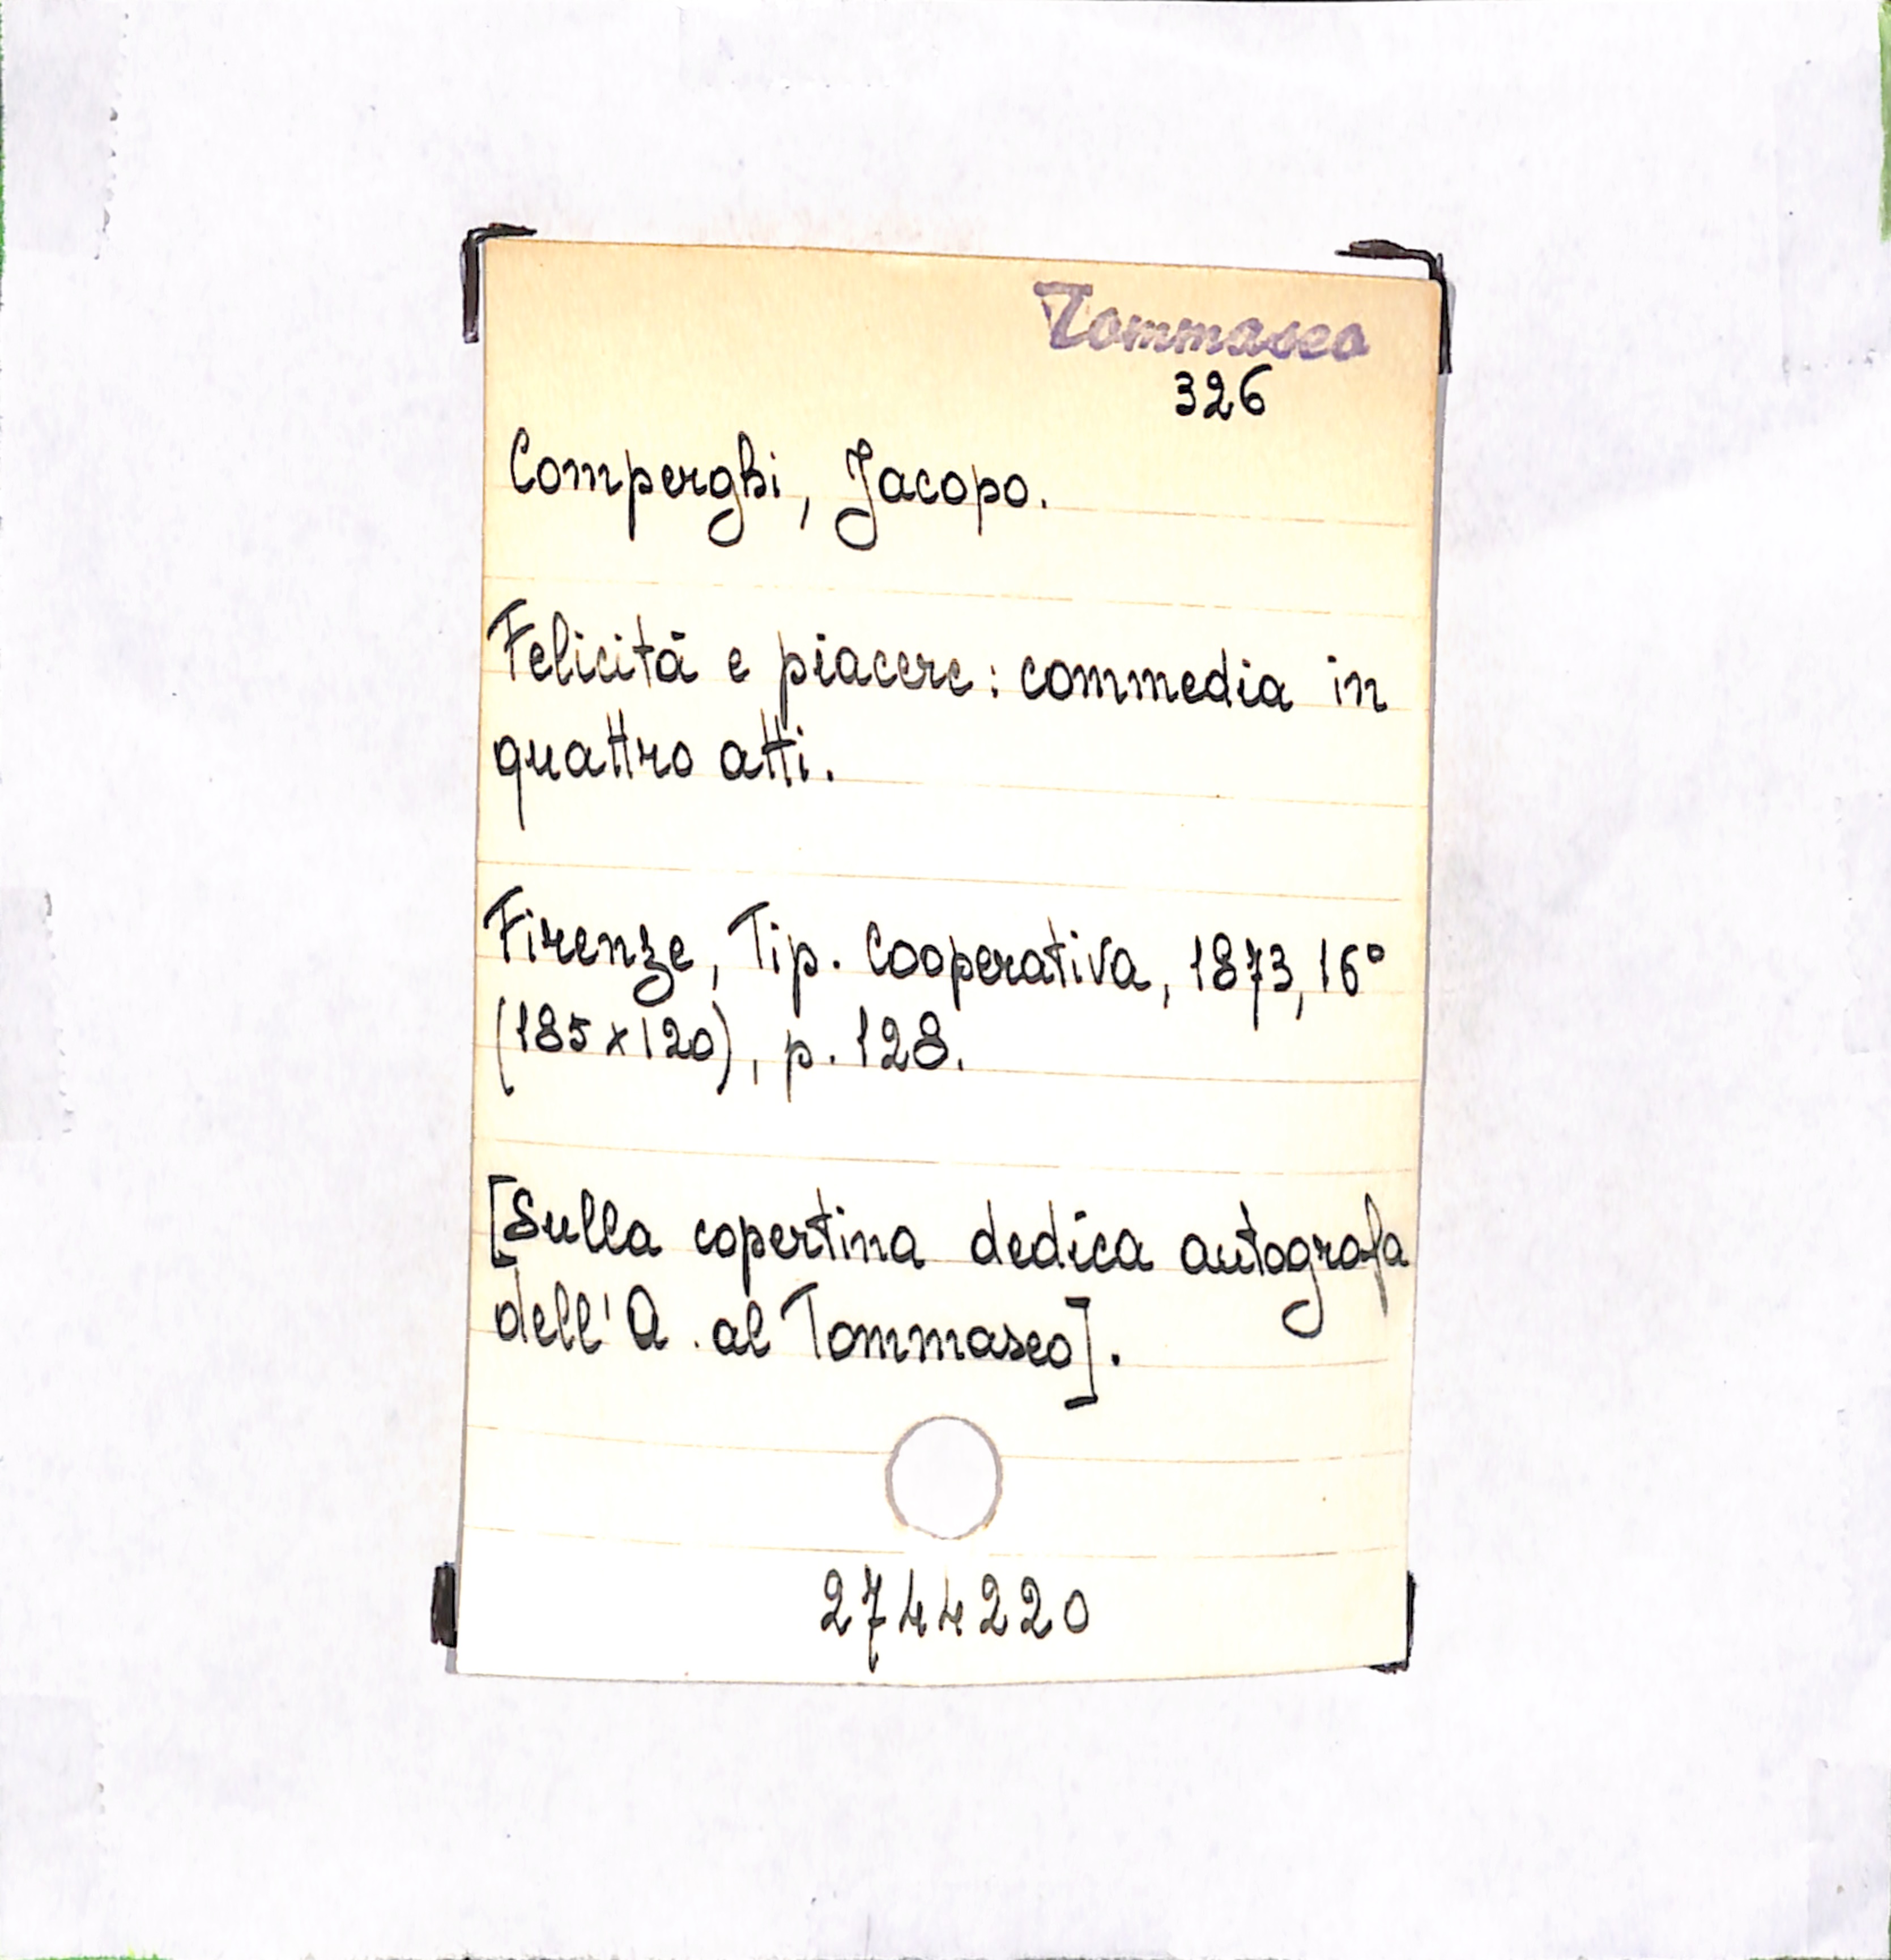 Tommaseo
326
Comperghi, Jacopo.
Felicità e piacere: commedia in
quattro atti.
Firenze, Tip. Cooperativa, 1873, 16°
(185x120), p. 128.
[Sulla copertina dedica autografa
dell'A. al Tommaseo].
2744220